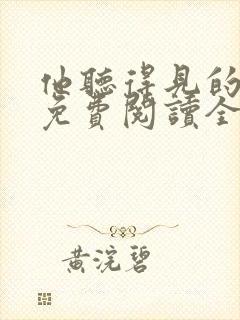 他聽得見的
免費閱讀全
黃浣碧